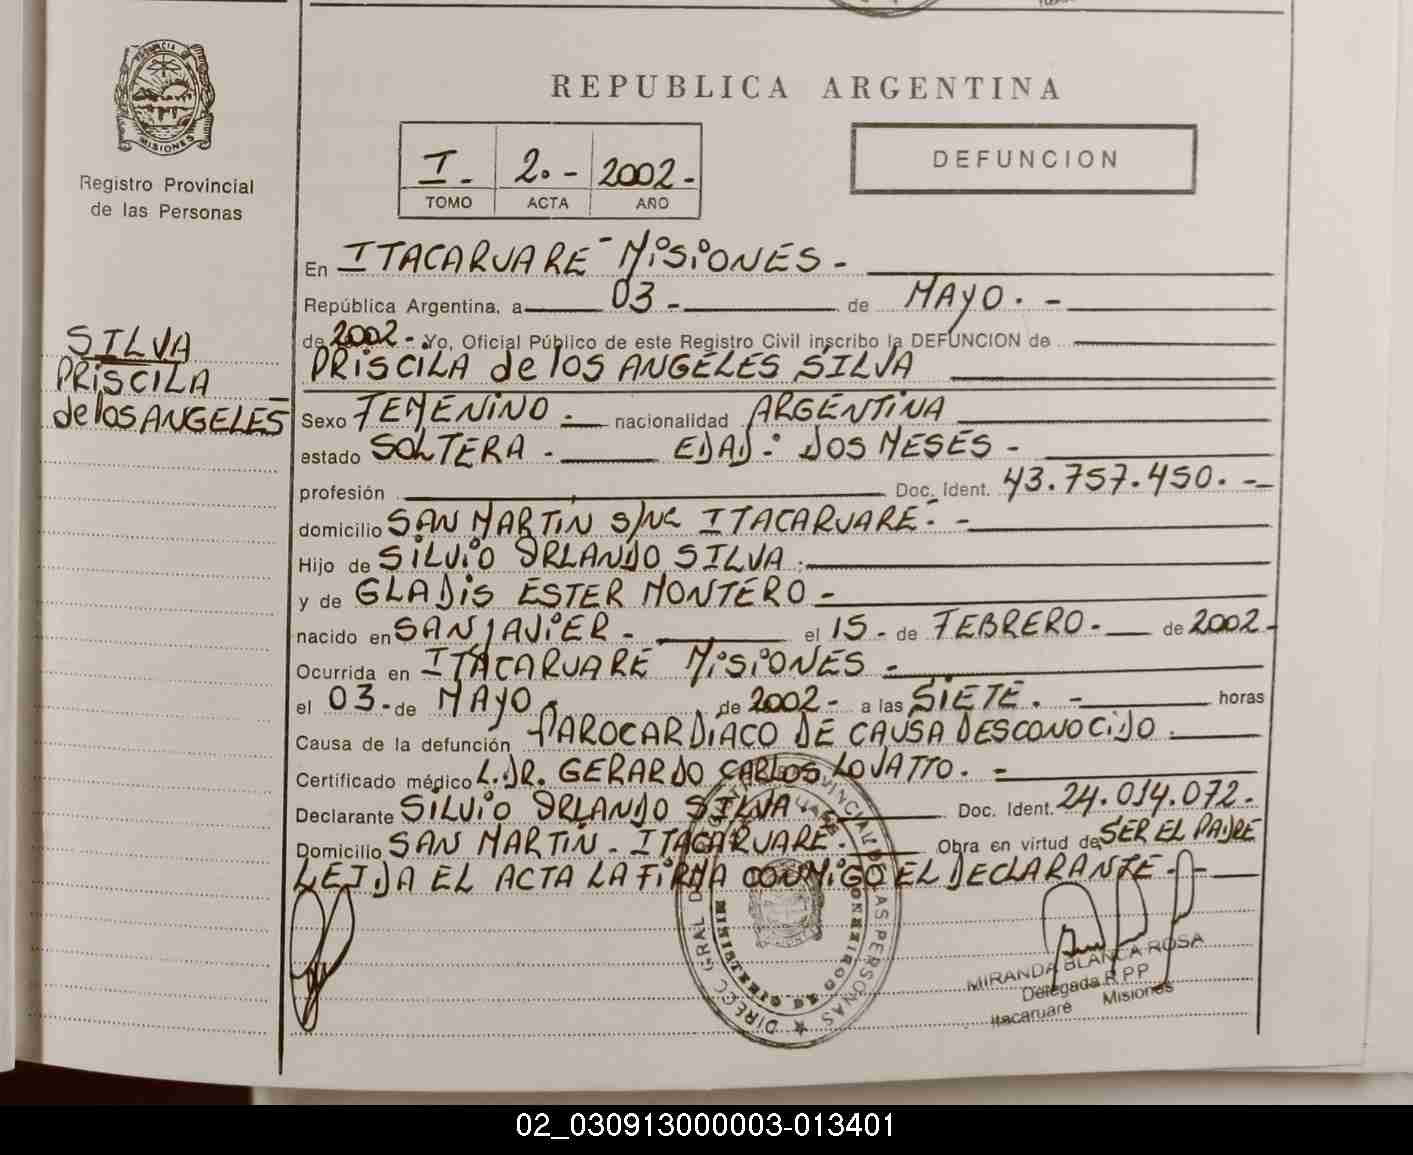 PROVINCIA DE
MISIONES
Registro Provincial
de las Personas
SILVA
PRISCILA
de los ANGELES
REPUBLICA ARGENTINA
I- 2.- 2002-
TOMO ACTA AÑO
DEFUNCION
En ITACARUARE - MISIONES -
República Argentina, a 03- de MAYO. -
de 2002- Yo, Oficial Público de este Registro Civil inscribo la DEFUNCION de
PRISCILA de los ANGELES SILVA
Sexo FEMENINO - nacionalidad ARGENTINA
estado SOLTERA - EDAD: DOS MESES -
profesión Doc. Ident. 43.757.450. -
domicilio SAN MARTIN S/Nº ITACARUARE. -
Hijo de SILVIO ORLANDO SILVA.
y de GLADIS ESTER MONTERO -
nacido en SAN JAVIER - el 15 - de FEBRERO. - de 2002 -
Ocurrida en ITACARUARE MISIONES -
el 03 - de MAYO - de 2002 - a las SIETE. - horas
Causa de la defunción PAROCARDIACO DE CAUSA DESCONOCIDO.
Certificado médico L. DR. GERARDO CARLOS LOVATTO. -
Declarante SILVIO ORLANDO SILVA - Doc. Ident. 24.014.072.-
Domicilio SAN MARTIN - ITACARUARE. Obra en virtud de SER EL PADRE
LEIDA EL ACTA LA FIRMA CONMIGO EL DECLARANTE - -
DIRECC GRAL DE PROVINCIAL DE LAS PERSONAS
MINISTERIO DE GOBIERNO
MIRANDA BLANCA ROSA
Delegada R P P
Itacaruaré Misiones
02_030913000003-013401